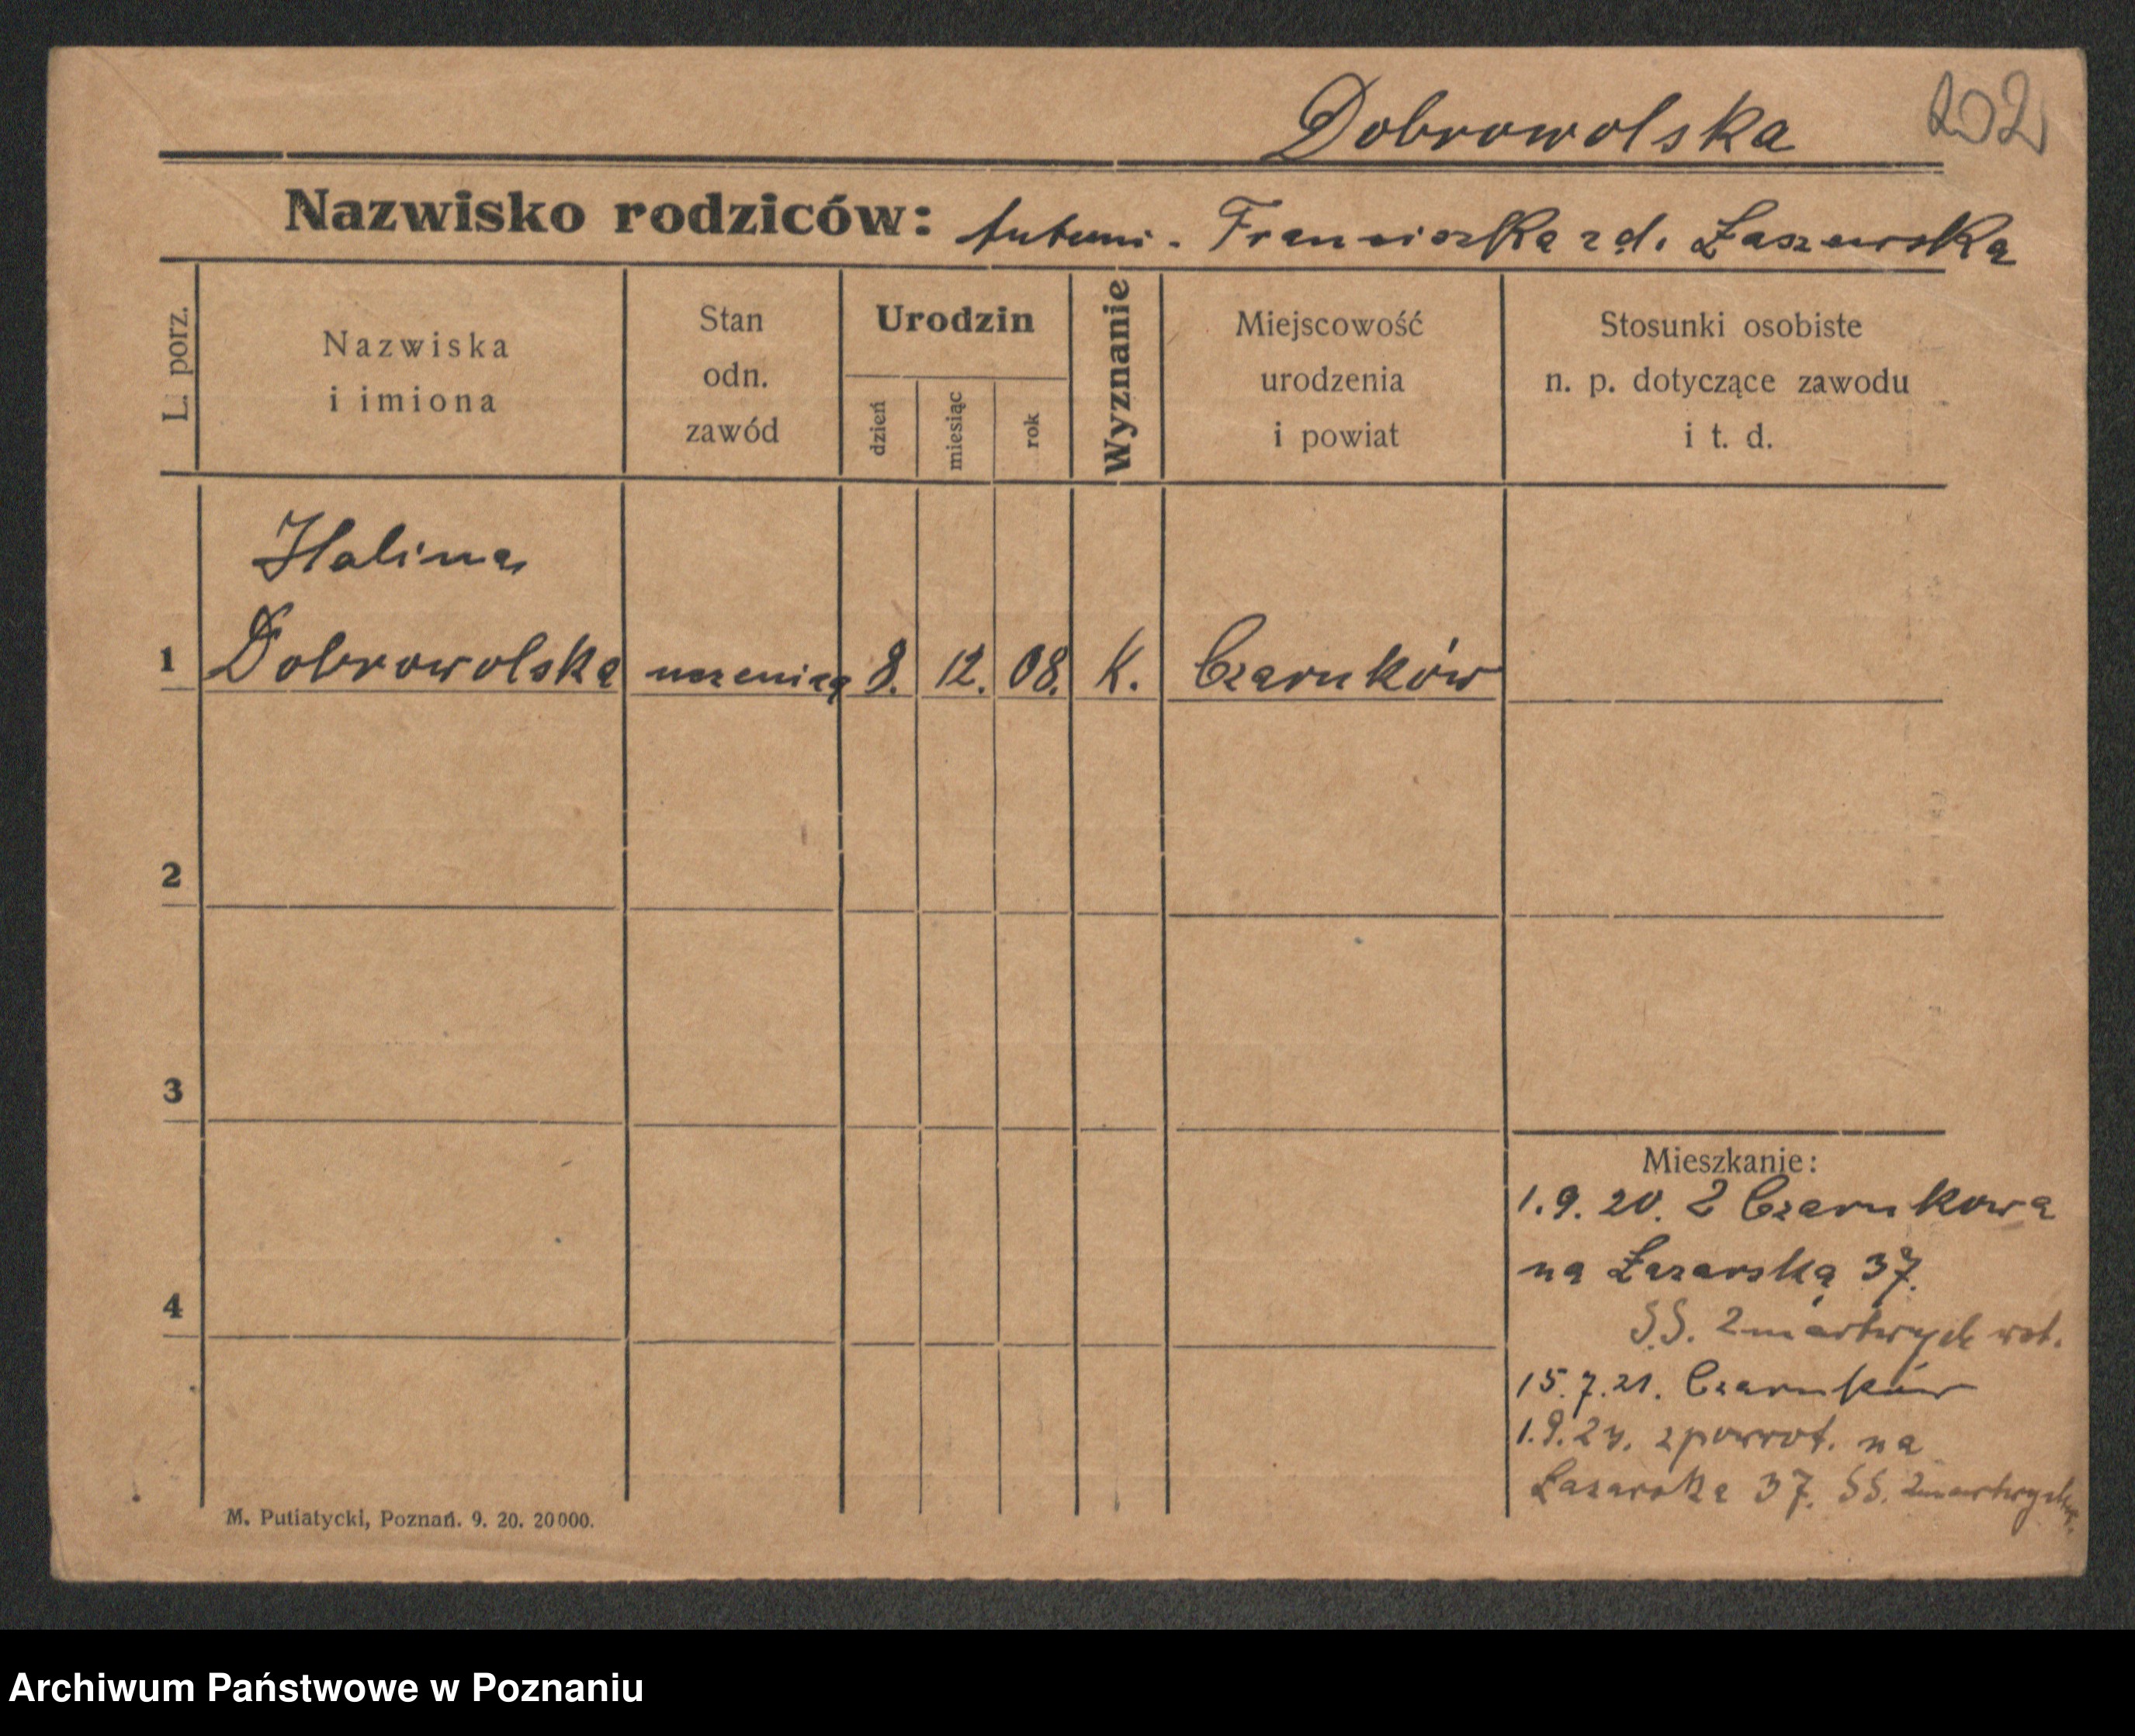 Dobrowolska
202
Nazwisko rodziców: Antoni - Franciszka zd. Łaszewska
L. porz.
Nazwiska
i imiona
Stan
odn.
zawód
Urodzin
dzień
miesiąc
rok
Wyznanie
Miejscowość
urodzenia
i powiat
Stosunki osobiste
n. p. dotyczące zawodu
i t. d.
Halina
1 Dobrowolska uczenica 8. 12. 08. K. Czarnków
2
3
4
Mieszkanie:
1.9.20. Z Czarnkowa
na Łazarską 37.
SS. Zmartwych wst.
15.7.21. Czarnków
zpowrot. na
Łazarska 37. SS.
M. Putiatycki, Poznań. 9. 20. 20000.
Archiwum Państwowe w Poznaniu